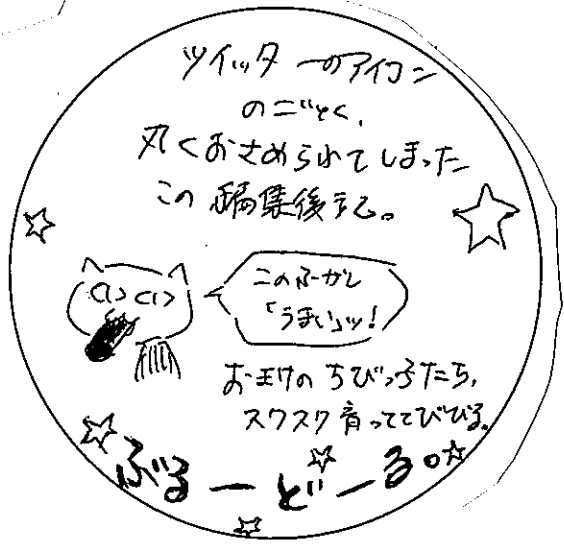 ツイッターのアイコン
のごとく、
丸くおさめられてしまった
この編集後記。
このふーがし
「うまい」ッ!
お玉けの ちびっ子たち、
スクスク育っててびびる。
ぶるーどーる。